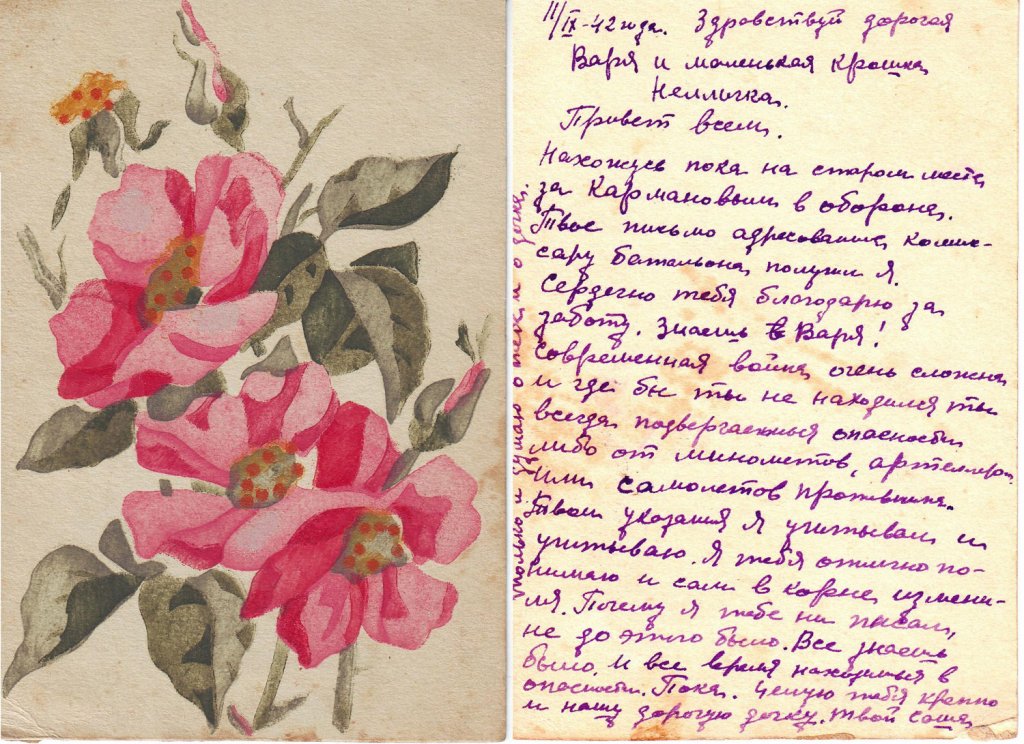 11/IX-42 года. Здравствуй дорогая
Варя и маленькая крошка
Неллочка.
Привет всем.
Нахожусь пока на старом месте
за Кармановым в обороне.
Твое письмо адресованное комис-
сару батальона получил я.
Сердечно тебя благодарю за
заботу. Знаешь Варя!
Современная война очень сложна
и где бы ты не находился ты
всегда подвергаешься опасности
либо от минометов, артеллерии
или самолетов противника.
Твои указания я учитывал и
учитываю. Я тебя отлично по-
нимаю и сам в корне измени-
лся. Почему я тебе ни писал,
не до этого было. Все знаешь
было и все время находишься в
опасности. Пока. Целую тебя крепко
и нашу дорогую дочку. Твой Саша
только и думаю о тебе и о дочке.